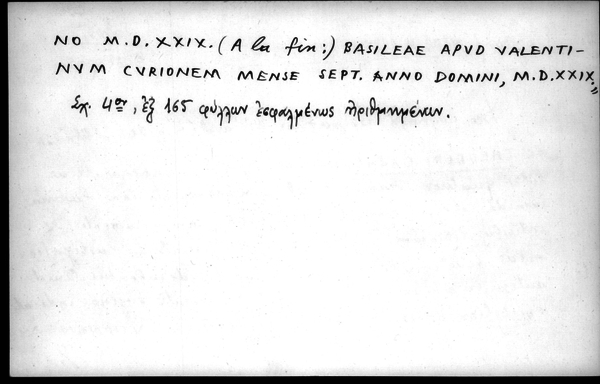 NO M.D.XXIX. (A la fin:) BASILEAE APVD VALENTI-
NVM CVRIONEM MENSE SEPT. ANNO DOMINI, M.D.XXIX.,,
Σχ. 4ον, ἐξ 165 φύλλων ἐσφαλμένως ἠριθμημένων.